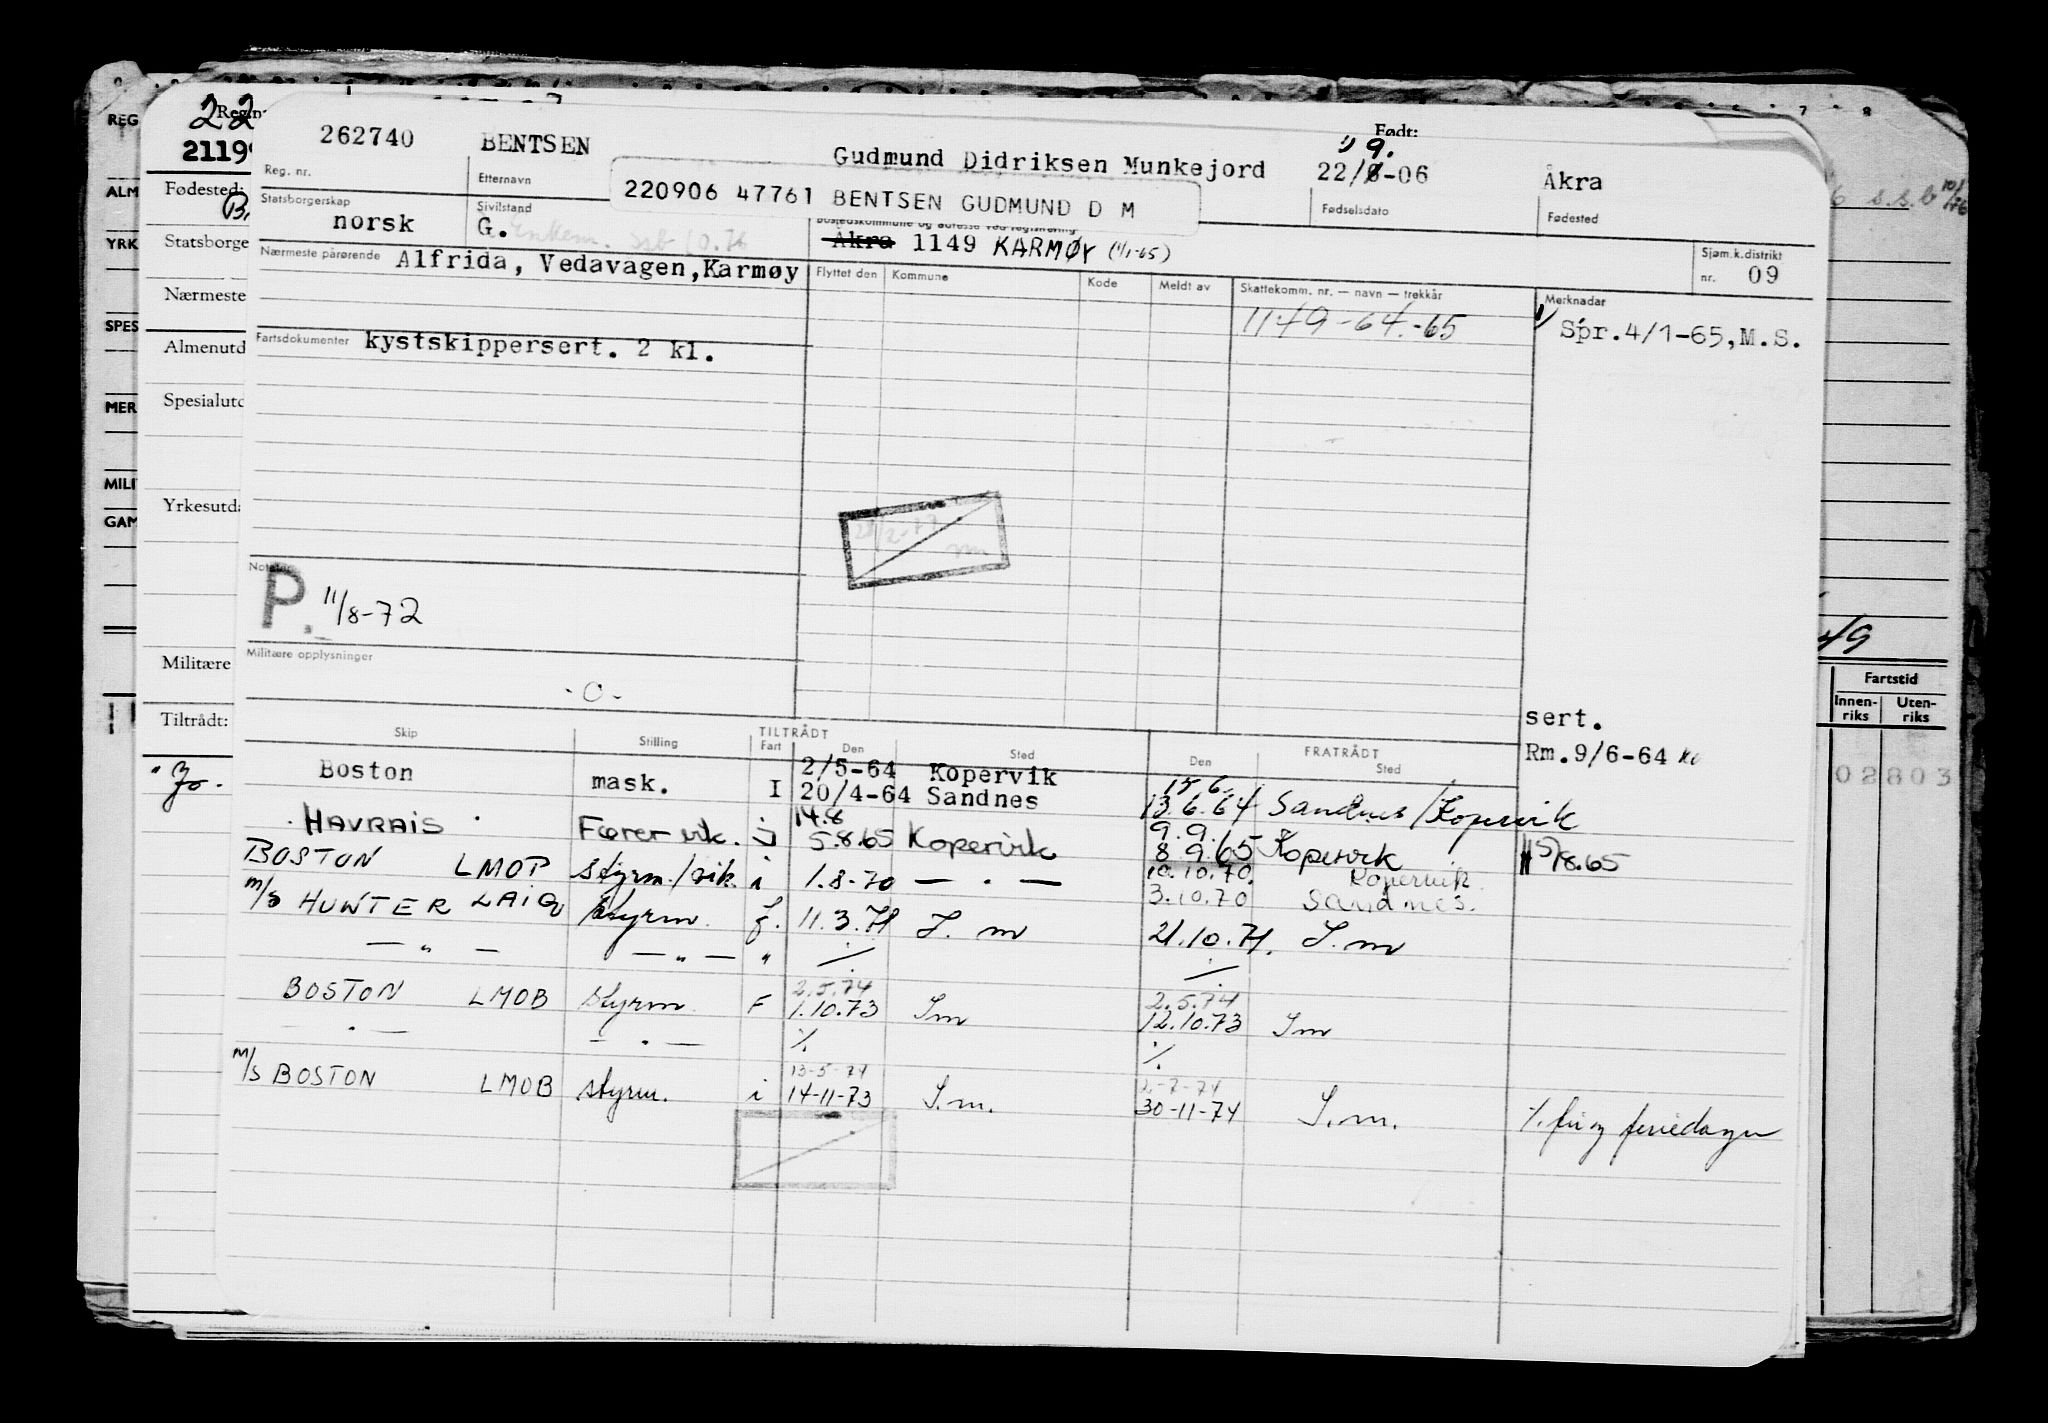 REG
ALM
YRK
SPES
MER
MILI
GAM
22
2119
Fødested:
Statsborge
Nærmeste
Almenutd
Spesialutd
Yrkesutda
Militære
Tiltrådt:
Født:
262740 BENTSEN Gudmund Didriksen Munkejord 22/8-06 Åkra
1) 9.
Reg. nr. Etternavn Fødselsdato Fødested
220906 47761 BENTSEN GUDMUND D M
Statsborgerskap norsk Sivilstand G. Enkem. Ssb 10.76
Bostedskommune og adresse ved registrering
Åkra 1149 KARMØY (1/1-65)
Sjøm.k.distrikt nr. 09
Nærmeste pårørende Alfrida, Vedavagen, Karmøy
Flyttet den Kommune Kode Meldt av Skattekomm. nr. — navn — trekkår Merknader
1149-64-65
1) Spr.4/1-65,M.S.
Fartsdokumenter kystskippersert. 2 kl.
Notater
P. 11/8-72
Militære opplysninger
-0-
sert.
Rm.9/6-64
Skip Stilling TILTRÅDT Fart Den Sted FRATRÅDT Den Sted
Boston mask. I 2/5-64 Kopervik 15.6.
20/4-64 Sandnes 13.6.64 Sandnes/Kopervik
HAVRAIS Fører vik. i 14.8 5.8.65 Kopervik 9.9. 8.9.65 Kopervik 5/8.65
BOSTON LMOP styrm./vik. i 1.8-70 — . — 10.10.70 Kopervik
3.10.70 Sandnes.
m/s HUNTER LAIQ styrm. f. 11.3.71 S. m 21.10.71. S. m
— " — — " — " ./. ./.
BOSTON LMOB styrm. F 2.5.74 1.10.73 Sm 2.5.74 12.10.73 Sm
— . — — . — ./. ./.
m/s BOSTON LMOB styrm. i 13-5-74 14-11-73 S.m. 30-11-74 S.m. ./. fri og feriedager
Fartstid
Innen-riks Uten-riks
02803